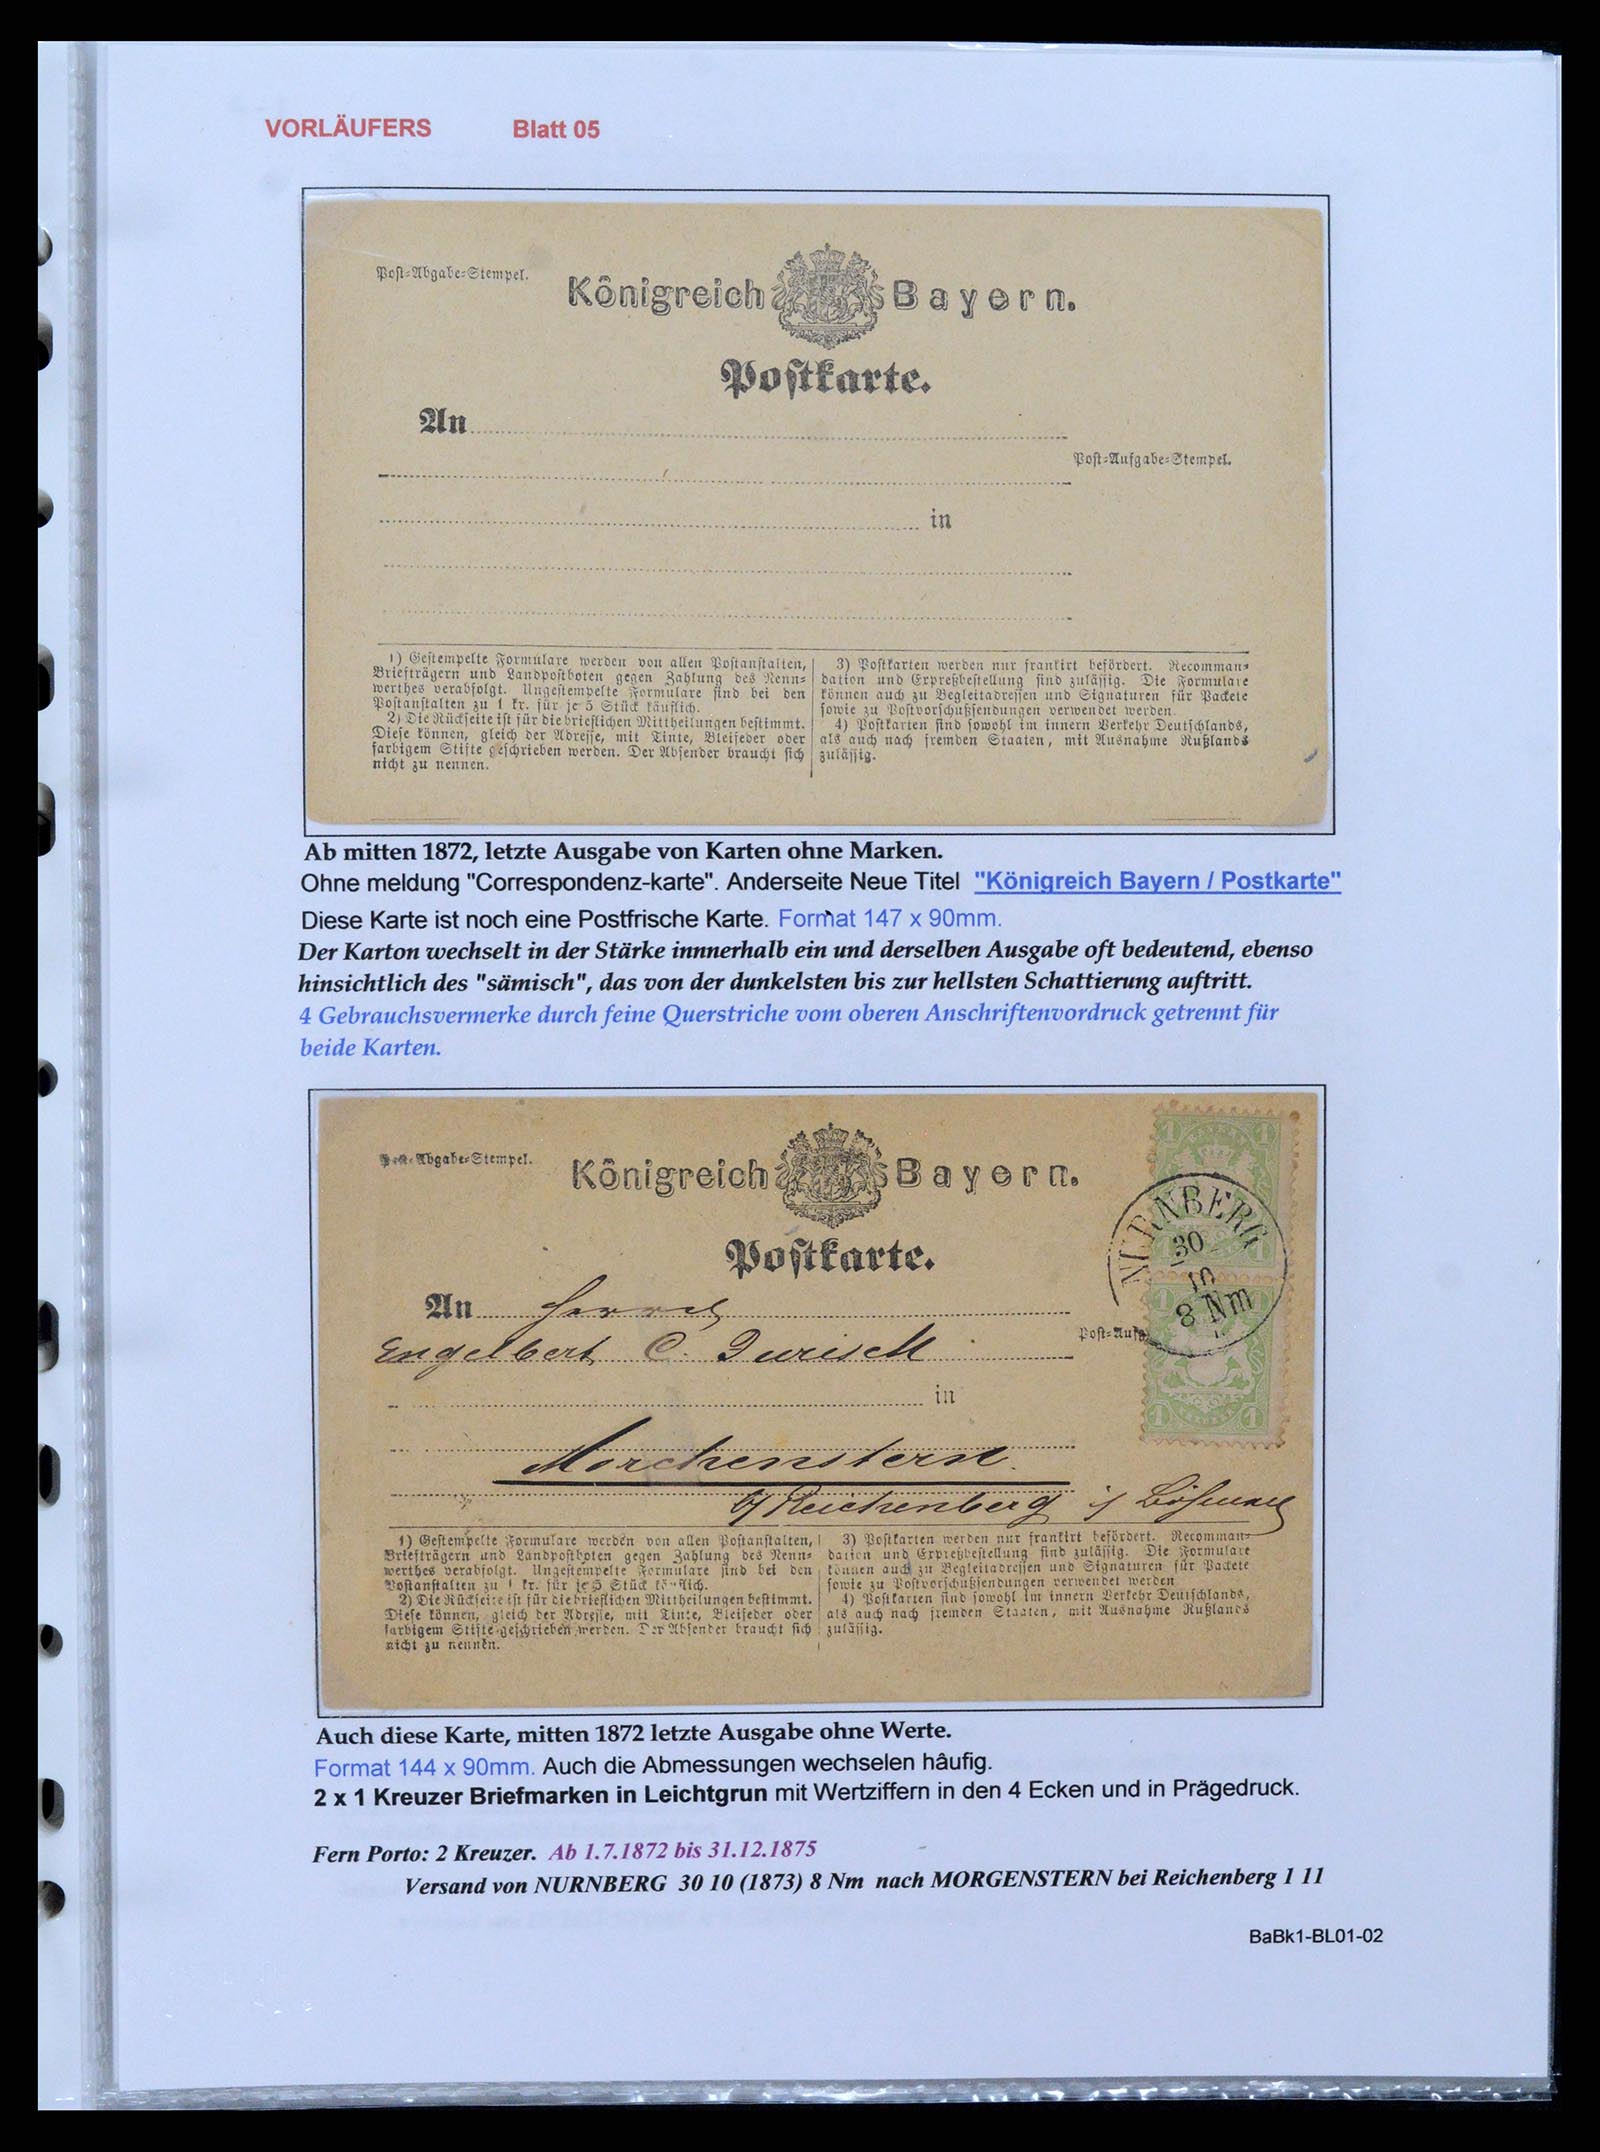 VORLÄUFERS Blatt 05
Post-Abgabe-Stempel.
Königreich Bayern.
Postkarte.
An
Post-Aufgabe-Stempel.
in
1) Gestempelte Formulare werden von allen Postanstalten,
Briefträgern und Landpostboten gegen Zahlung des Nenn-
werthes verabfolgt. Ungestempelte Formulare sind bei den
Postanstalten zu 1 kr. für je 5 Stück käuflich.
2) Die Rückseite ist für die brieflichen Mittheilungen bestimmt.
Diese können, gleich der Adresse, mit Tinte, Bleifeder oder
farbigem Stifte geschrieben werden. Der Absender braucht sich
nicht zu nennen.
3) Postkarten werden nur frankirt befördert. Recomman-
dation und Expreßbestellung sind zulässig. Die Formulare
können auch zu Begleitadressen und Signaturen für Packete
sowie zu Postvorschußsendungen verwendet werden.
4) Postkarten sind sowohl im innern Verkehr Deutschlands,
als auch nach fremden Staaten, mit Ausnahme Rußlands
zulässig.
Ab mitten 1872, letzte Ausgabe von Karten ohne Marken.
Ohne meldung "Correspondenz-karte". Anderseite Neue Titel "Königreich Bayern / Postkarte"
Diese Karte ist noch eine Postfrische Karte. Format 147 x 90mm.
Der Karton wechselt in der Stärke innnerhalb ein und derselben Ausgabe oft bedeutend, ebenso
hinsichtlich des "sämisch", das von der dunkelsten bis zur hellsten Schattierung auftritt.
4 Gebrauchsvermerke durch feine Querstriche vom oberen Anschriftenvordruck getrennt für
beide Karten.
Post-Abgabe-Stempel.
Königreich Bayern.
1 BAYERN 1
NÜRNBERG
30
10
8 Nm
1 1
1 1
Postkarte.
An Herrn
Post-Aufg
Engelbert C. Jurisch
in
Morchenstern
b/ Reichenberg i/ Böhmen
1) Gestempelte Formulare werden von allen Postanstalten,
Briefträgern und Landpostboten gegen Zahlung des Nenn-
werthes verabfolgt. Ungestempelte Formulare sind bei den
Postanstalten zu 1 kr. für je 5 Stück käuflich.
2) Die Rückseite ist für die brieflichen Mittheilungen bestimmt.
Diese können, gleich der Adresse, mit Tinte, Bleifeder oder
farbigem Stifte geschrieben werden. Der Absender braucht sich
nicht zu nennen.
3) Postkarten werden nur frankirt befördert. Recomman-
dation und Expreßbestellung sind zulässig. Die Formulare
können auch zu Begleitadressen und Signaturen für Packete
sowie zu Postvorschußsendungen verwendet werden
4) Postkarten sind sowohl im innern Verkehr Deutschlands,
als auch nach fremden Staaten, mit Ausnahme Rußlands
zulässig.
Auch diese Karte, mitten 1872 letzte Ausgabe ohne Werte.
Format 144 x 90mm. Auch die Abmessungen wechselen hâufig.
2 x 1 Kreuzer Briefmarken in Leichtgrun mit Wertziffern in den 4 Ecken und in Prägedruck.
Fern Porto: 2 Kreuzer. Ab 1.7.1872 bis 31.12.1875
Versand von NURNBERG 30 10 (1873) 8 Nm nach MORGENSTERN bei Reichenberg 1 11
BaBk1-BL01-02